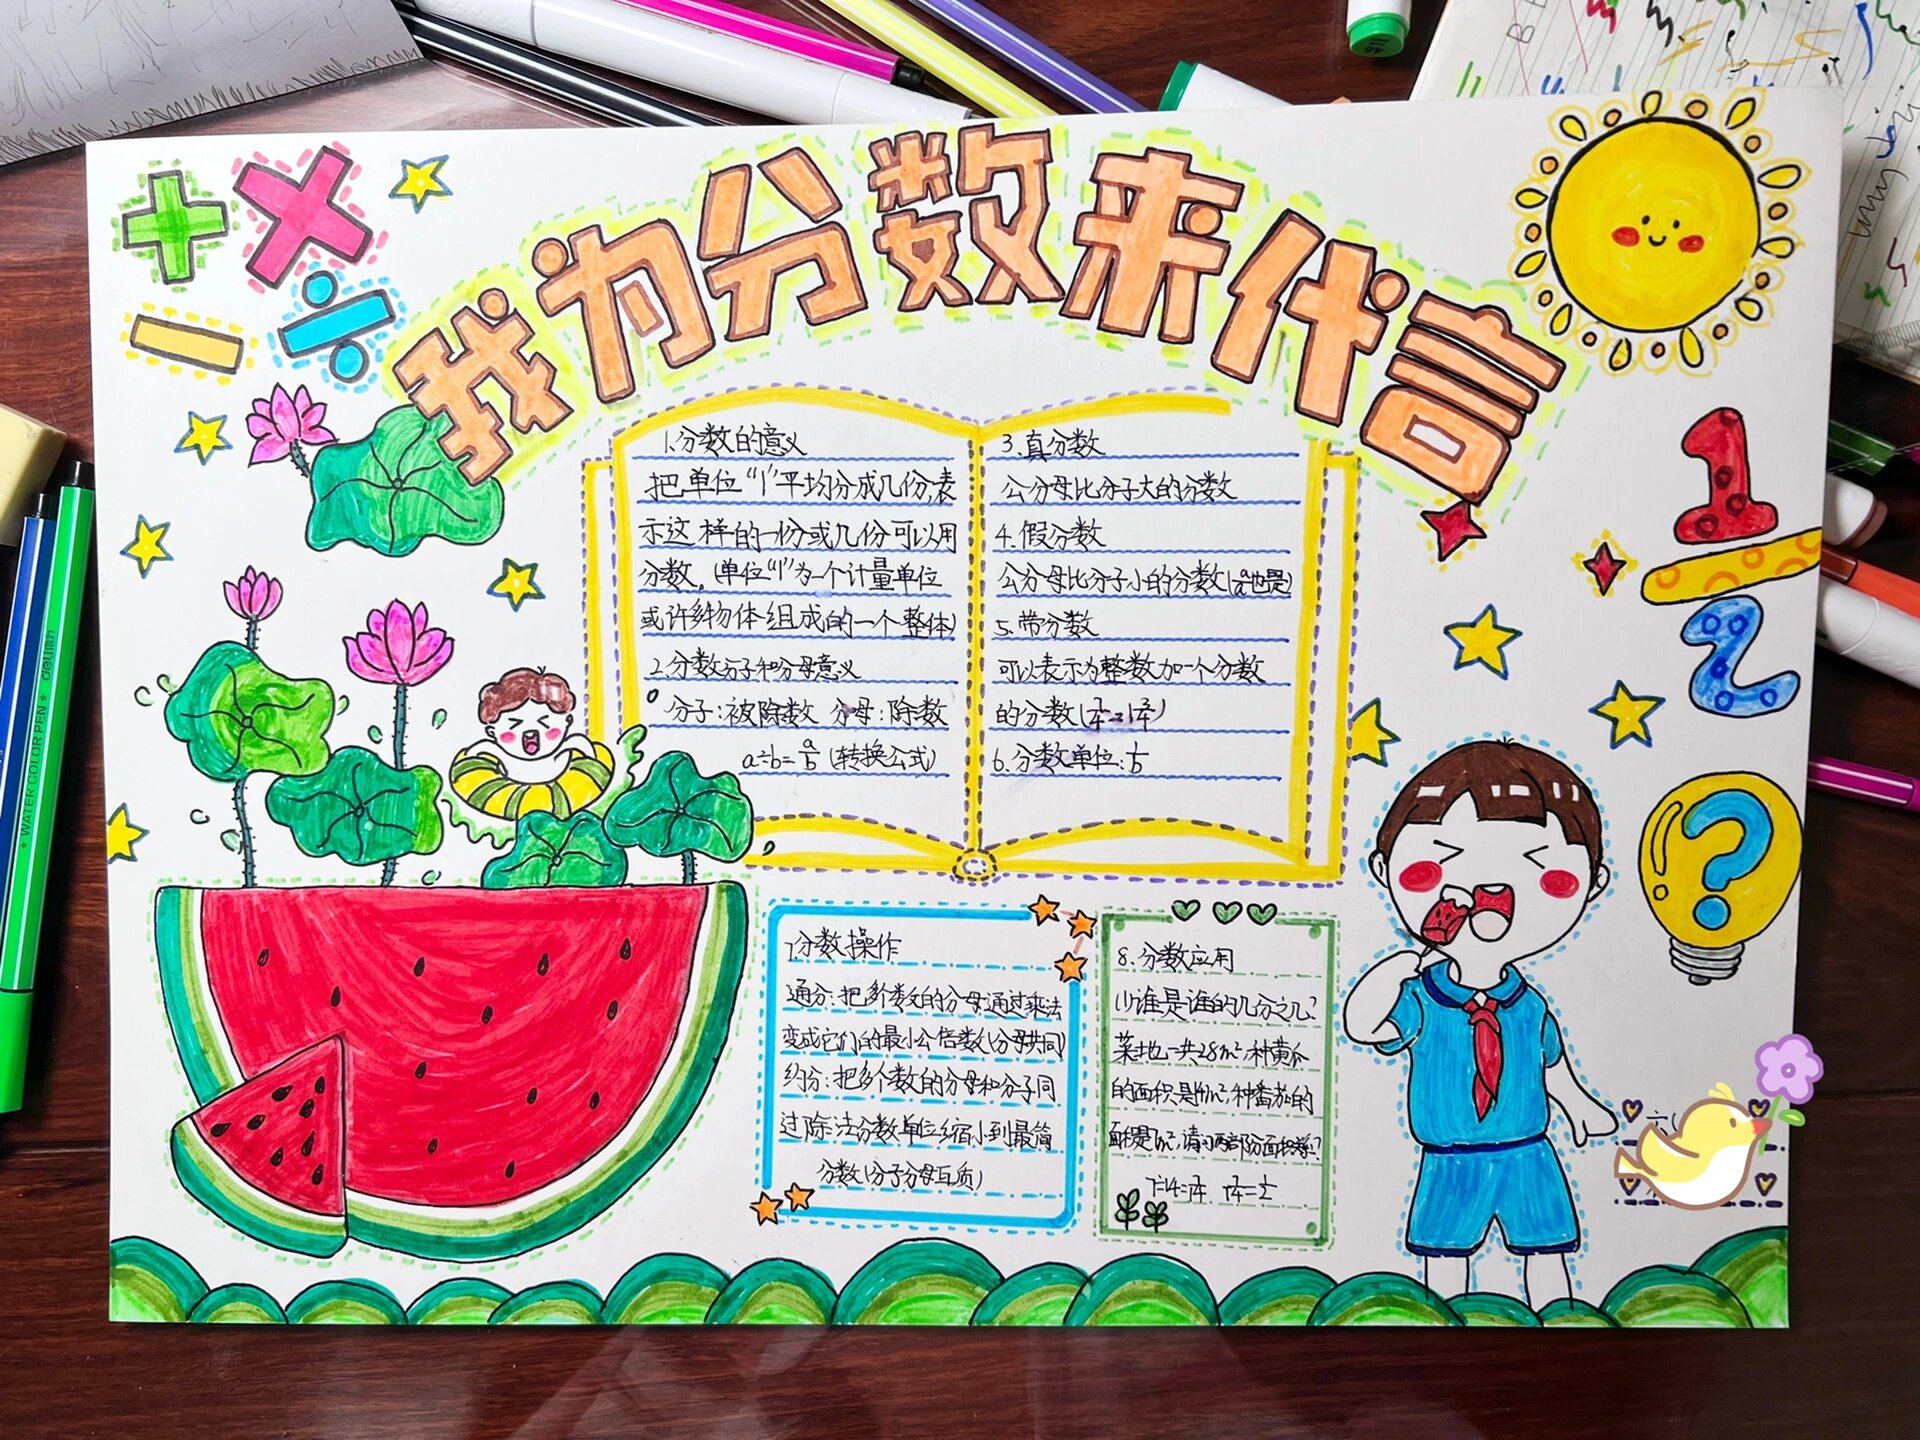 我为分数来代言
1.分数的意义
把单位“1”平均分成几份,表
示这样的一份或几份可以用
分数。(单位“1”为一个计量单位
或许多物体组成的一个整体)
2.分数分子和分母意义
分子:被除数 分母:除数
a÷b=a/b (转换公式)
3.真分数
公分母比分子大的分数
4.假分数
公分母比分子小的分数(a/a也是)
5.带分数
可以表示为整数加一个分数
的分数
6.分数单位:1/b
1
2
?
7.分数操作
通分:把多个数的分母通过乘法
变成它们的最小公倍数(分母共同)
约分:把多个数的分母和分子同
过除法分数单位缩小到最简
分数(分子分母互质)
8.分数应用
(1)谁是谁的几分之几?
菜地一共28m²,种黄瓜
的面积是14m²,种番茄的
面积是7m²,请问两部分面积
7÷14=7/14 7/14=1/2
六(
*WATER COLOR PEN* deli